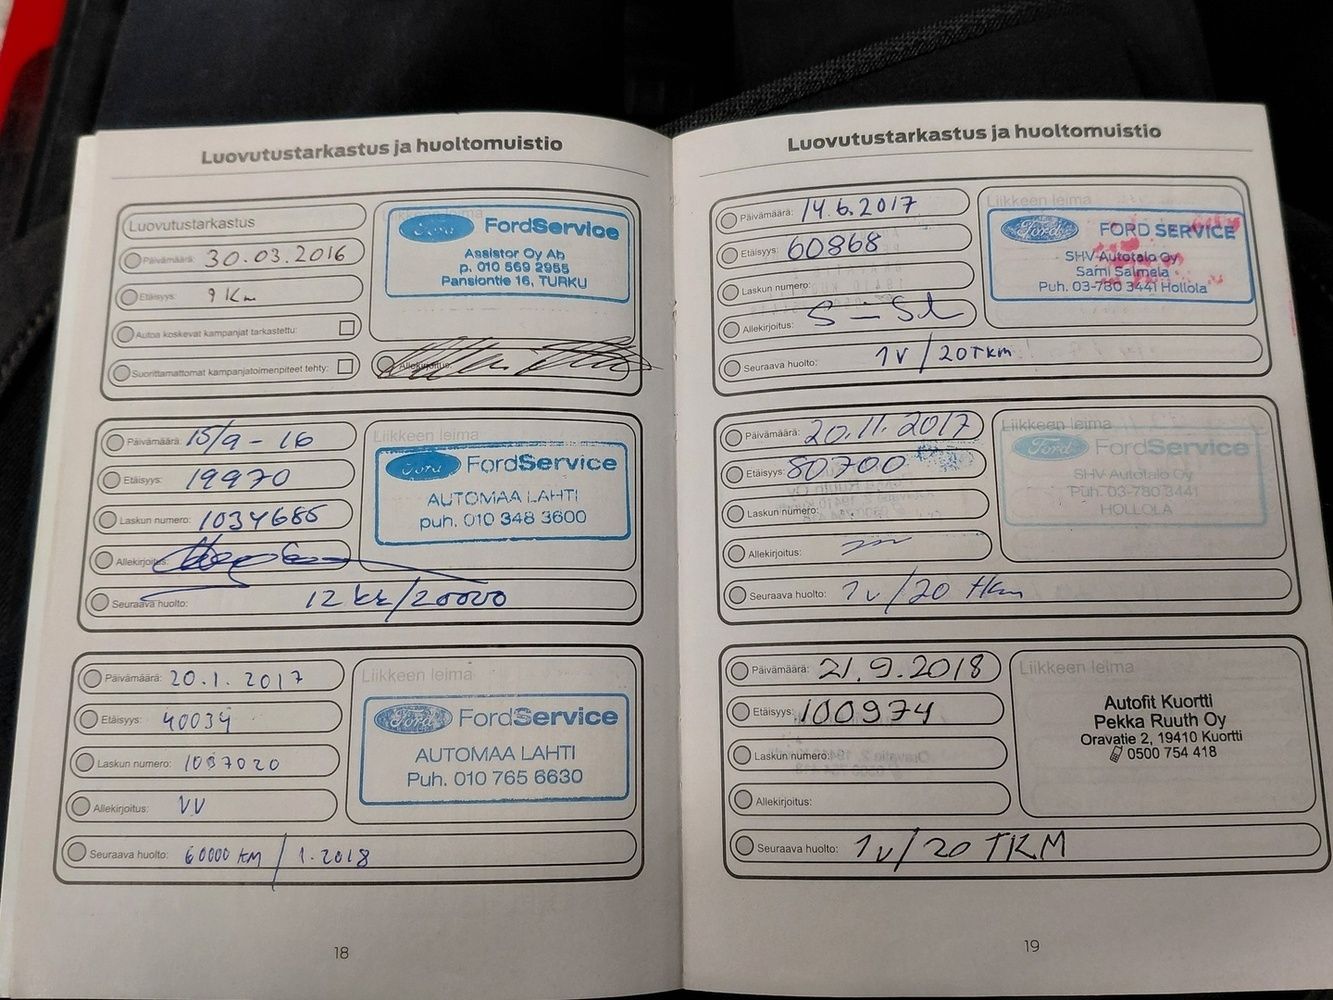 Luovutustarkastus ja huoltomuistio
Luovutustarkastus
Päivämäärä: 30.03.2016
Etäisyys: 9 Km
Autoa koskevat kampanjat tarkastettu:
Suorittamattomat kampanjatoimenpiteet tehty:
Ford FordService
Assistor Oy Ab
p. 010 569 2955
Pansiontie 16, TURKU
Allekirjoitus:
Päivämäärä: 15/9 - 16
Etäisyys: 19970
Laskun numero: 1034686
Allekirjoitus:
Seuraava huolto: 12 kk/20000
Liikkeen leima
Ford FordService
AUTOMAA LAHTI
puh. 010 348 3600
Päivämäärä: 20.1.2017
Etäisyys: 40034
Laskun numero: 1037020
Allekirjoitus: VV
Seuraava huolto: 60000 KM / 1.2018
Liikkeen leima
Ford FordService
AUTOMAA LAHTI
Puh. 010 765 6630
18
Luovutustarkastus ja huoltomuistio
Päivämäärä: 14.6.2017
Etäisyys: 60868
Laskun numero:
Allekirjoitus: S-Sl
Seuraava huolto: 1v/20Tkm
Liikkeen leima
Ford FORD SERVICE
SHV-Autotalo Oy
Sami Salmela
Puh. 03-780 3441 Hollola
Päivämäärä: 20.11.2017
Etäisyys: 80700
Laskun numero:
Allekirjoitus:
Seuraava huolto: 1v/20 tkm
Liikkeen leima
Ford FordService
SHV-Autotalo Oy
Puh. 03-780 3441
HOLLOLA
Päivämäärä: 21.9.2018
Etäisyys: 100974
Laskun numero:
Allekirjoitus:
Seuraava huolto: 1v/20 TKM
Liikkeen leima
Autofit Kuortti
Pekka Ruuth Oy
Oravatie 2, 19410 Kuortti
0500 754 418
19